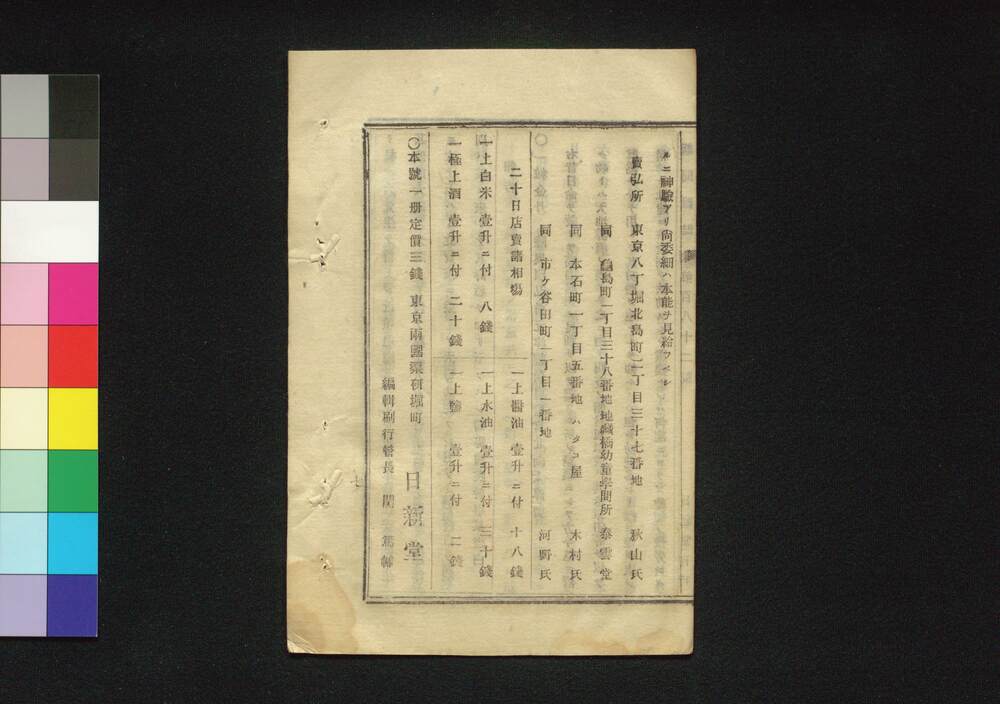 ルニ神驗アリ尙委細ハ本能ヲ見給フベシ
賣弘所 東京八丁堀北島町二丁目三十七番地 秋山氏
同 龜島町一丁目三十八番地地藏橋幼童學問所 泰雲堂
同 本石町一丁目五番地ハタゴ屋 木村氏
同 市ケ谷田町一丁目一番地 河野氏
二十日店賣諸相塲
一上醬油 壹升ニ付 十八錢
一上白米 壹升ニ付 八錢
一上水油 壹升ニ付 三十錢
一極上酒 壹升ニ付 二十錢
一上鹽 壹升ニ付 二錢
〇本號一册定價三錢 東京兩國藥硏堀町 日新堂
編輯刷行督長
七